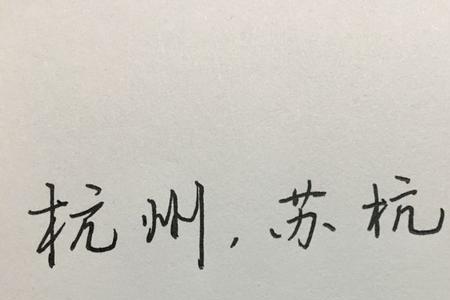 杭州，苏杭